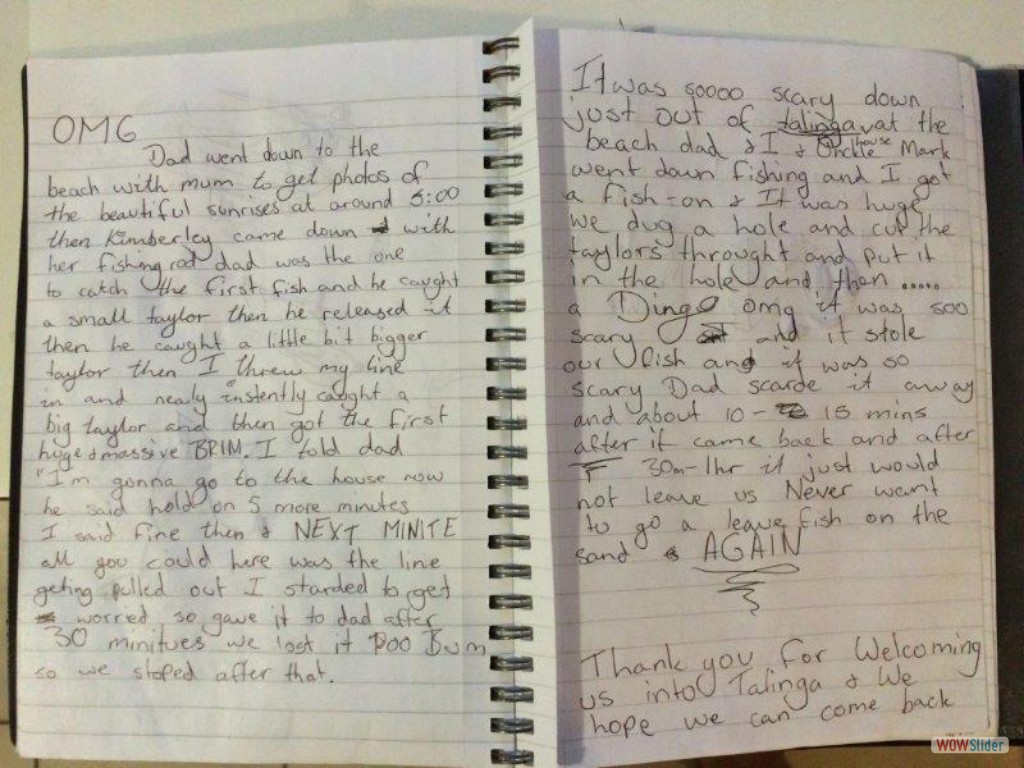 OMG
Dad went down to the
beach with mum to get photos of
the beautiful sunrises at around 5:00
then Kimberley came down with
her fishing rod dad was the one
to catch the first fish and he caught
a small taylor then he released it
then he caught a little bit bigger
taylor then I threw my line
in and nearly instently caught a
big taylor and then got the first
huge & massive BRIM. I told dad
"I'm gonna go to the house now
he said hold on 5 more minutes
I said fine then & NEXT MINITE
all you could here was the line
geting pulled out I starded to get
worried so gave it to dad after
30 minitues we lost it POO Bum
so we stoped after that.
It was soooo scary down
just out of talinga at the
house
beach dad & I & Onckle Mark
went down fishing and I got
a fish-on & It was huge
we dug a hole and cut the
taylors throught and put it
in the hole and then .....
a Dingo omg it was soo
scary and it stole
our fish and it was so
scary Dad scarde it away
and about 10 - 15 mins
after it came back and after
30m-1hr it just would
not leave us Never want
to go a leave fish on the
sand AGAIN
Thank you for Welcoming
us into Talinga & We
hope we can come back
WOWSlider